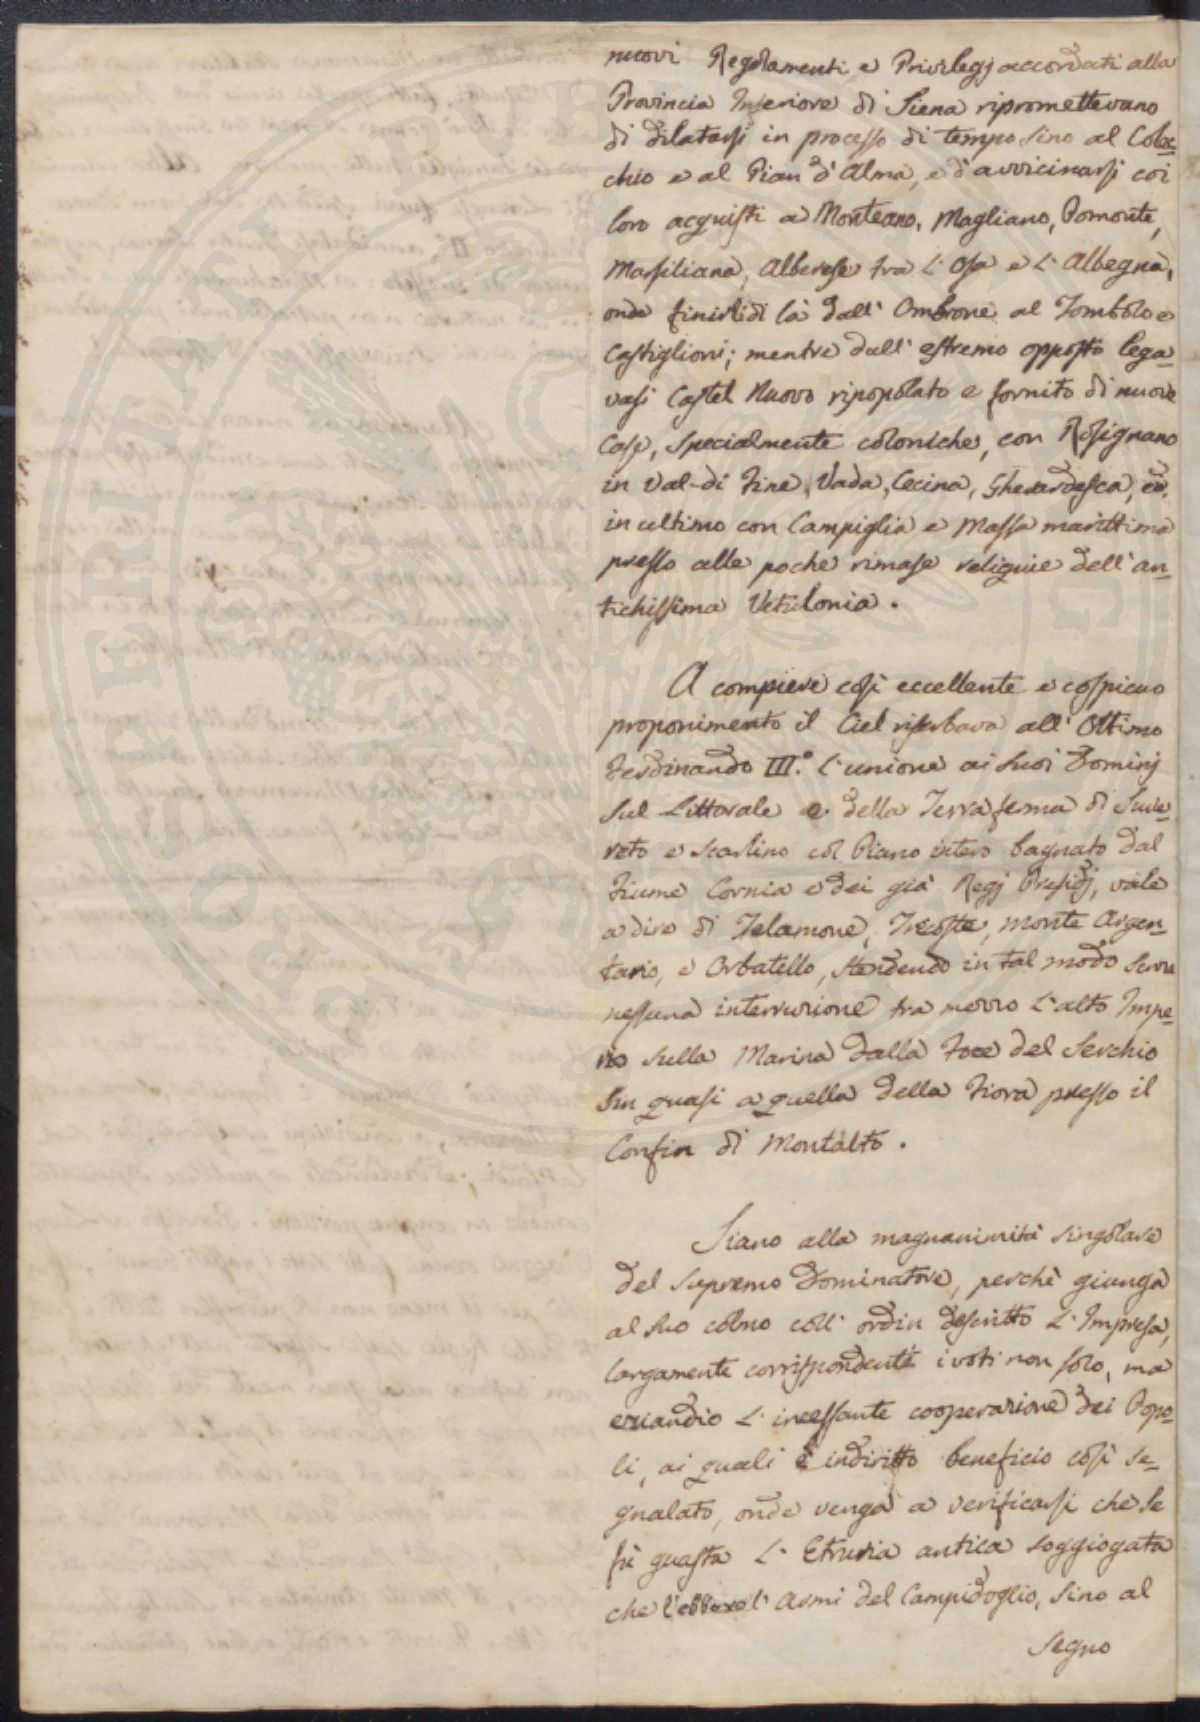 nuovi Regolamenti e Privilegj accordati alla
Provincia Inferiore di Siena ripromettevano
di dilatarsi in processo di tempo sino al Colec=
chio e al Pian d'Alma, e d'avvicinarsi coi
loro acquisti a Monteano, Magliano, Pomonte,
Marsiliana, Alberese tra l'Osa e l'Albegna,
onde finir di là dall'Ombrone al Tombolo e
Castiglioni; mentre dall'estremo opposto lega=
vasi Castel Nuovo ripopolato e fornito di nuove
Case, specialmente coloniche, con Rosignano
in Val-di Fine, Vada, Cecina, Gherardesca, ed,
in ultimo con Campiglia e Massa marittima
presso alle poche rimase reliquie dell'an=
tichissima Vetulonia.
A compiere così eccellente e cospicuo
proponimento il Ciel riserbava all'Ottimo
Ferdinando III.º l'unione ai suoi Dominj
sul Littorale e della Terra ferma di Suve=
reto e Scarlino col Piano intero bagnato dal
Fiume Cornia e dei già Regj Presidj, vale
a dire di Telamone, Trecoste, Monte Argen=
tario, e Orbatello, stendendo in tal modo senza
nessuna interruzione tra mezzo l'alto Impe=
rio sulla Marina dalla Foce del Serchio
sin quasi a quella della Fiora presso il
Confin di Montalto.
Siano alla magnanimità singolare
del supremo Dominatore, perchè giunga
al suo colmo coll'ordin descritto l'Impresa,
largamente corrispondenti i voti non solo, ma
eziandio l'incessante cooperazione dei Popo=
li, ai quali è indiritto beneficio così se=
gnalato, onde venga a verificarsi che se
fù guasta l'Etruria antica soggiogata
che l'ebbero l'Armi del Campidoglio, sino al
segno